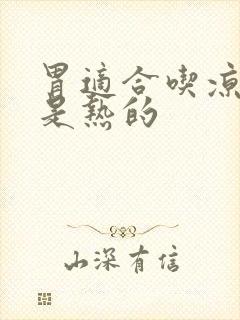 胃適合喫涼
是熱的
山深有信